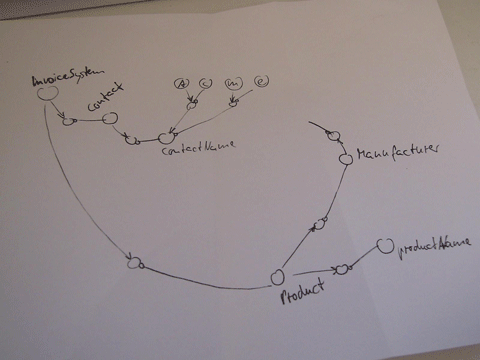 InvoiceSystem
contact
A c m e
contactName
Manufacturer
productName
Product